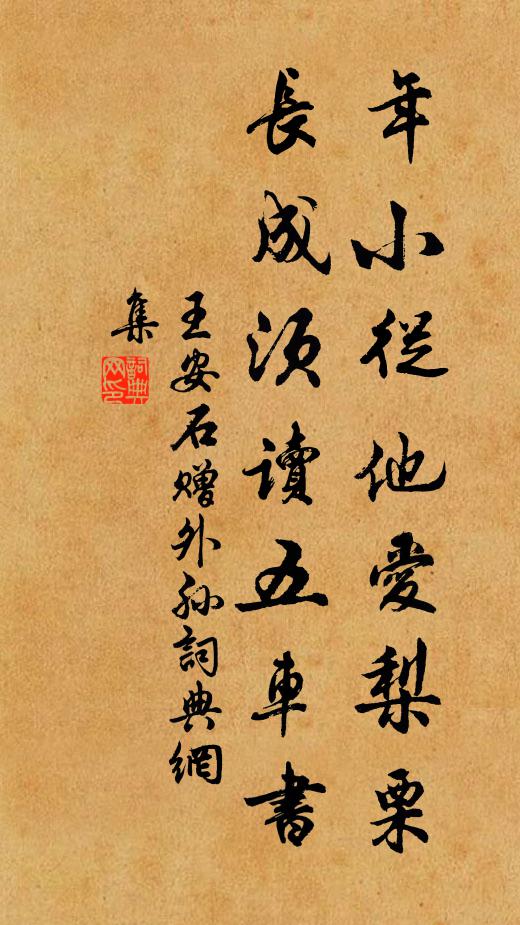 年小從他愛梨栗
長成須讀五車書
王安石赠外孙詞典網
集
詞典
网印